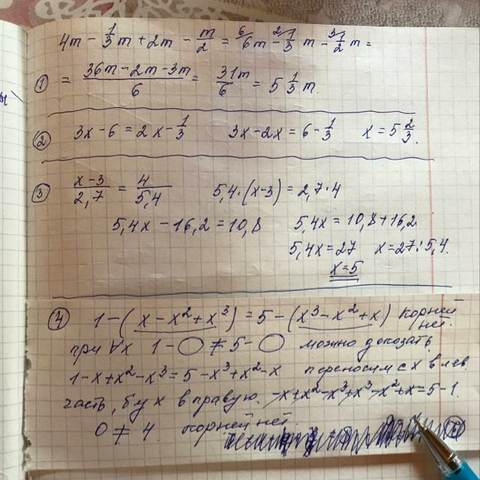 4m - 1/3 m + 2m - m/2 = 6/6m - 2\1/3 m - 3\1/2 m =
① = 36m-2m-3m/6 = 31m/6 = 5 1/3 m.
② 3x-6=2x-1/3 3x-2x=6-1/3 x=5 2/3.
③ x-3/2,7 = 4/5,4 5,4·(x-3)=2,7·4
5,4x-16,2=10,8 5,4x=10,8+16,2
5,4x=27 x=27:5,4.
x=5
④ 1-(x-x²+x³)=5-(x³-x²+x) корней нет.
при ∀x 1-◯≠5-◯ можно доказать
1-x+x²-x³=5-x³+x²-x переносим с x в лев
часть, б/у x в правую. -x+x²-x³+x³-x²+x=5-1.
0≠4 корней нет.